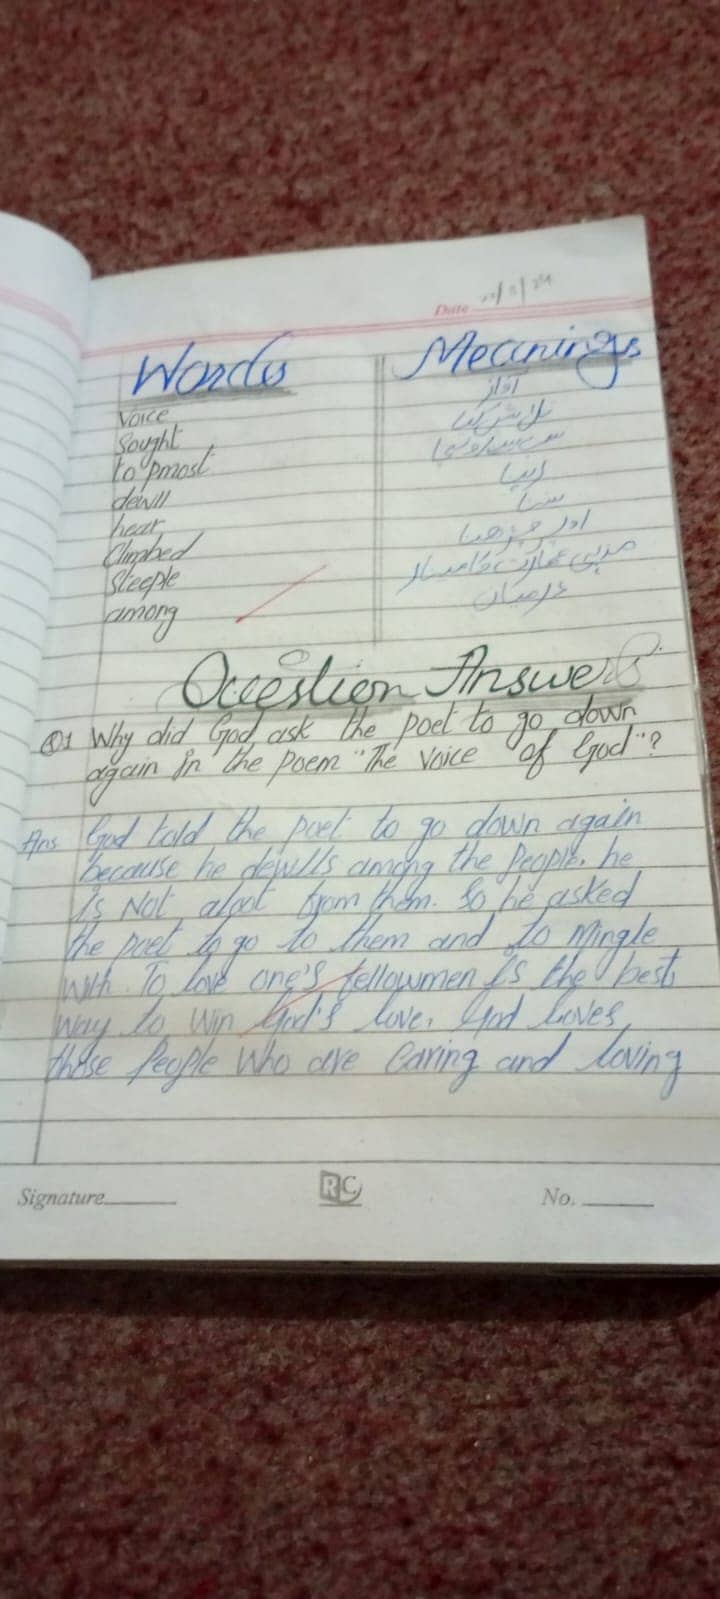 Date
Words Meanings
Voice آواز
Sought تلاش کیا
to pmost
dewll
hear سننا
Climbed
Steeple
among درمیان
Question Answers
Q1 Why did God ask the poet to go down
again in the poem "The Voice of God"?
Ans God told the poet to go down again
because he dewlls among the People. he
is Not aloof from them. So he asked
the poet to go to them and to Mingle
With. To love one's fellowmen is the best
way to win God's love. God Loves
those People Who are Caring and loving
Signature
RC
No.